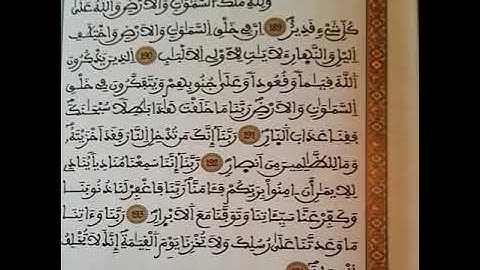 وَلِلهِ مُلْكُ السَّمَٰوَٰتِ وَالَارْضِ وَاللَّهُ عَلَىٰ
كُلِّ شَےْءٍ قَدِيرٌ 189 اِنَّ فِے خَلْقِ السَّمَٰوَٰتِ وَالَارْضِ وَاخْتِلَٰفِ
اِليْلِ وَالنَّهارِ ءَلَايَٰتٍ لِّأُوْلِے اِلَالْبَٰبِ 190 اَلذِينَ يَذْكُرُونَ
اَللَّهَ قِيَٰماً وَقُعُوداً وَعَلَىٰ جُنُوبِهِمْ وَيَتَفَكَّرُونَ فِے خَلْقِ
السَّمَٰوَٰتِ وَالَارْضِ رَبَّنَا مَا خَلَقْتَ هَٰذَا بَٰطِلاً سُبْحَٰنَكَ
فَقِنَا عَذَابَ اَلنّارِ 191 رَبَّنَا إِنَّكَ مَن تُدْخِلِ اِلنَّارَ فَقَدَ اَخْزَيْتَهُۥ
وَمَا لِلظَّٰلِمِينَ مِنَ اَنصارٍ 192 رَّبَّنَا إِنَّنَا سَمِعْنَا مُنَادِياً يُنَادِے
لِلِايمَٰنِ أَنَ اٰمِنُواْ بِرَبِّكُمْ فَـَٔامَنَّا رَبَّنَا فَاغْفِرْ لَنَا ذُنُوبَنَا
وَكَفِّرْ عَنَّا سَيِّـَٔاتِنَا وَتَوَفَّنَا مَعَ اَلَابْرارِ 193 رَبَّنَا وَءَاتِنَا
مَا وَعَدتَّنَا عَلَىٰ رُسُلِكَ وَلَا تُخْزِنَا يَوْمَ اَلْقِيَٰمَةِ إِنَّكَ لَا تُخْلِفُ